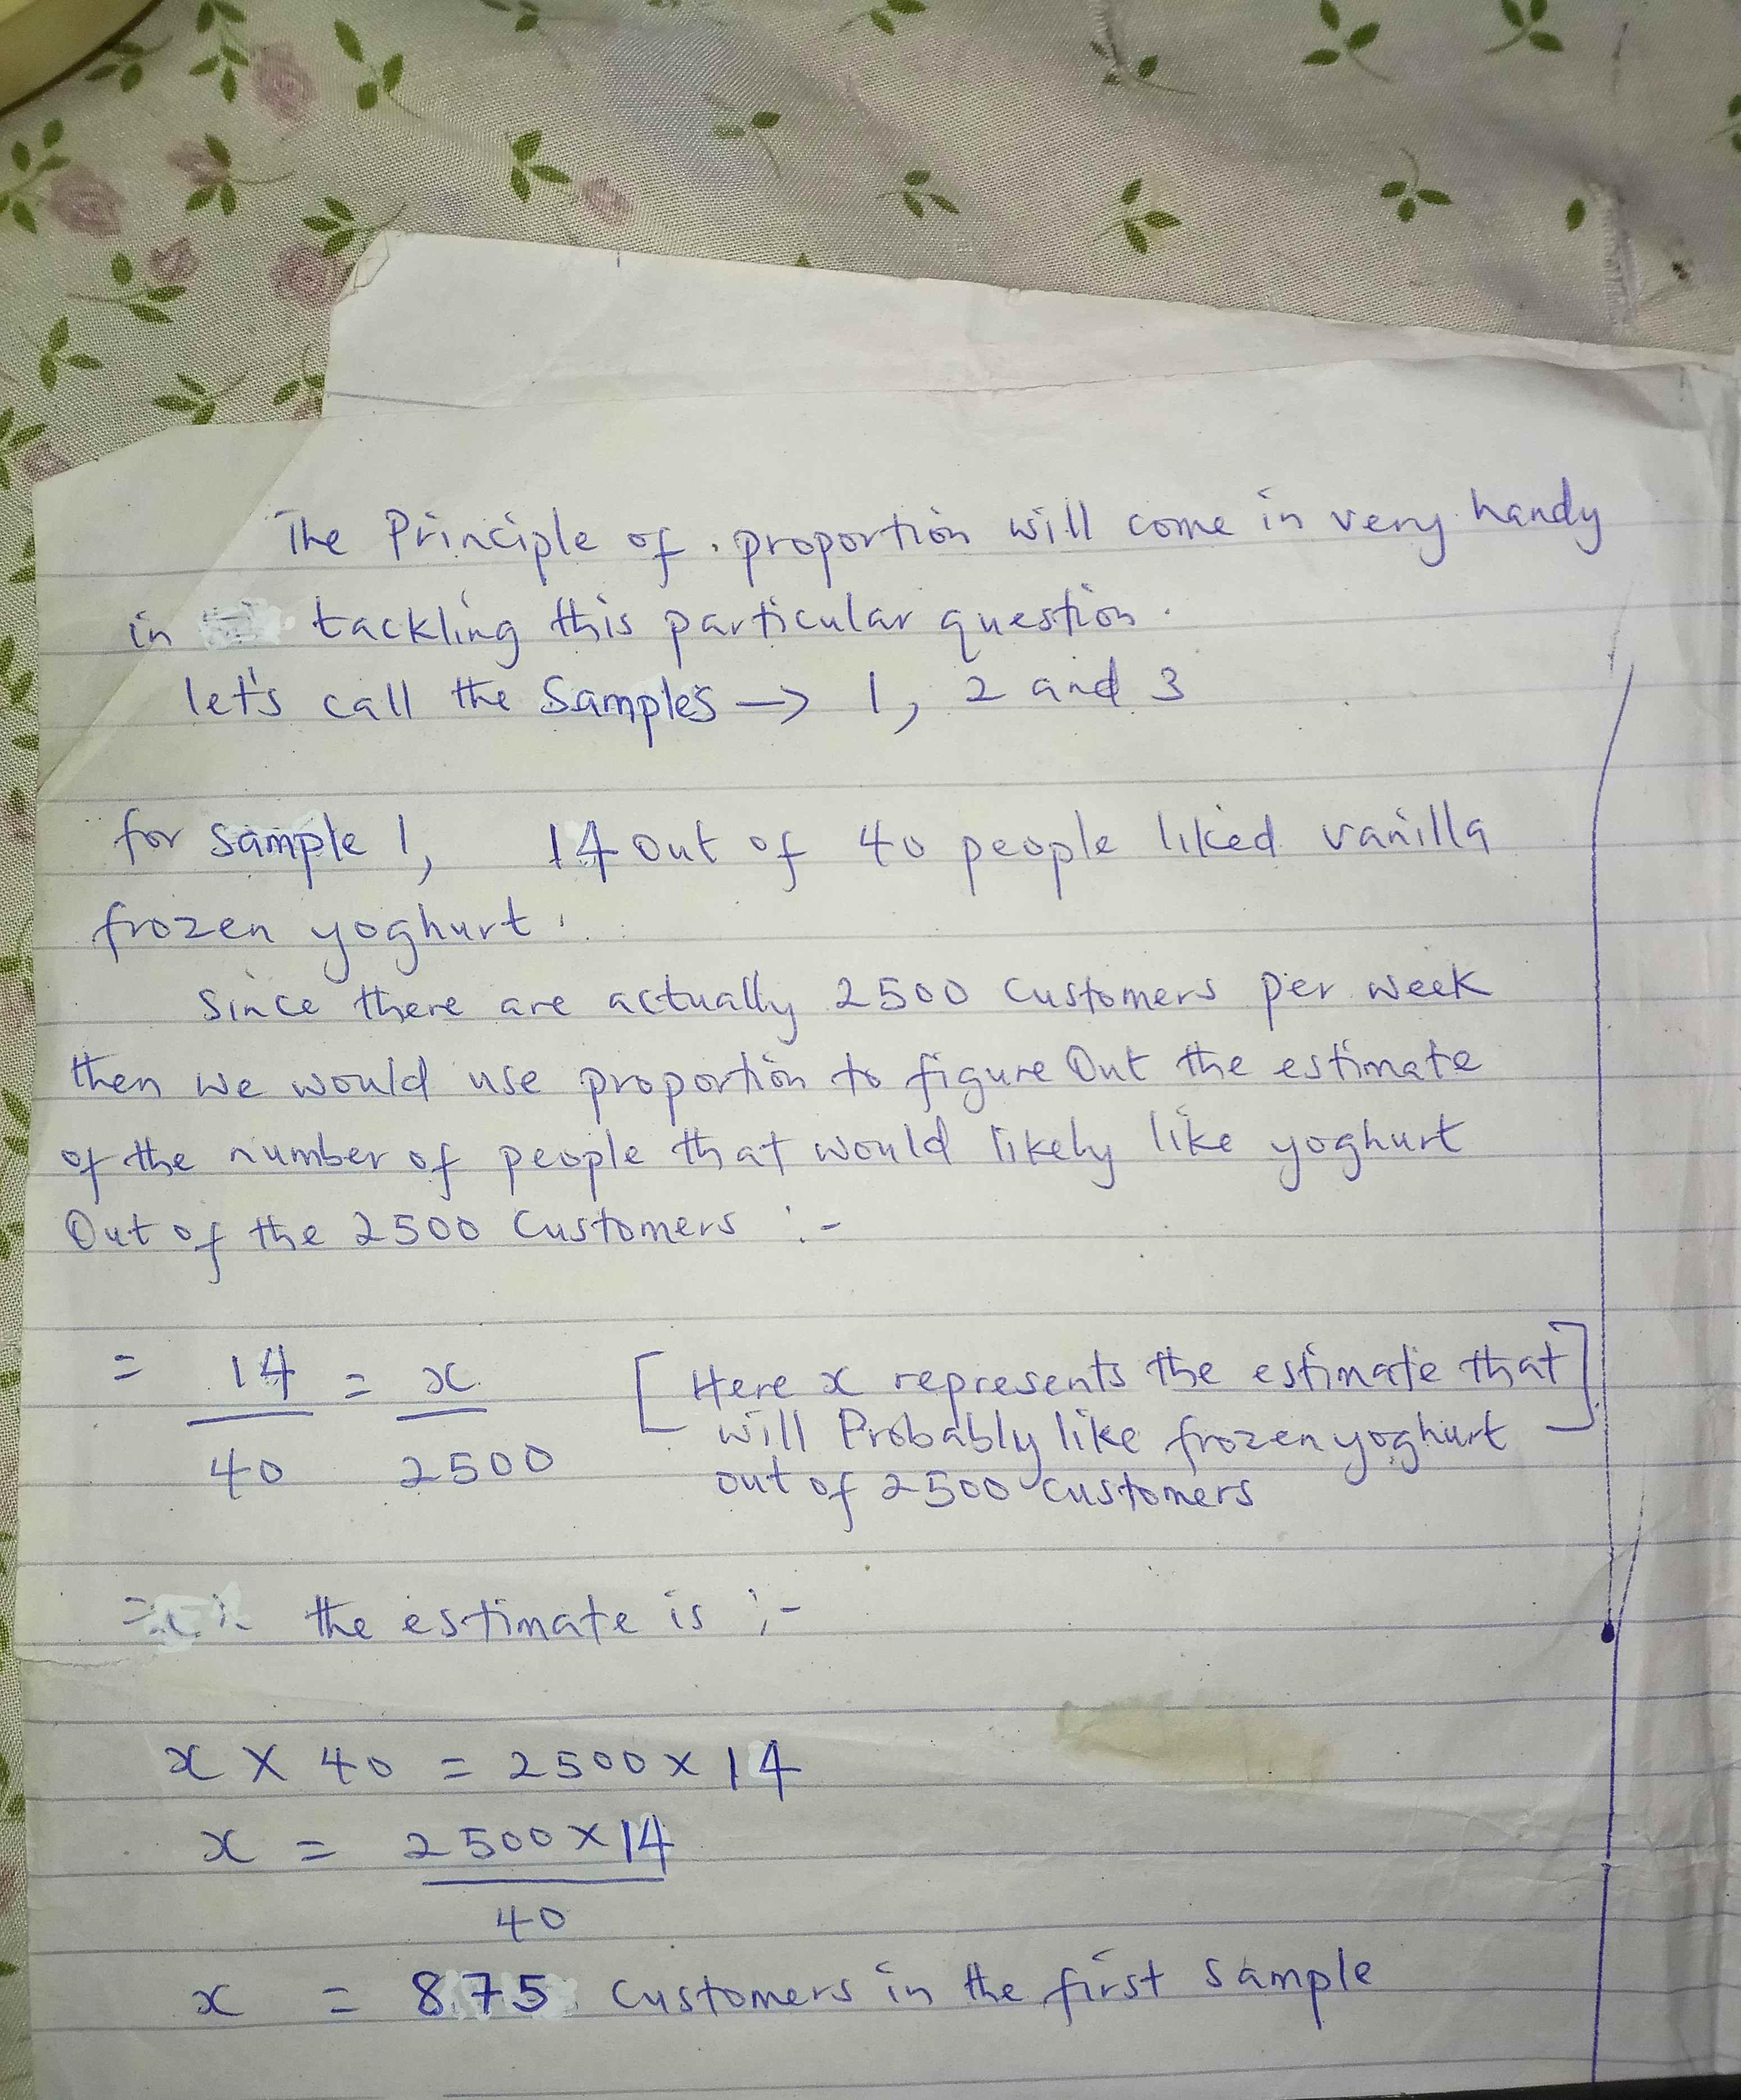 The Principle of proportion will come in very handy
in tackling this particular question.
let's call the Samples → 1, 2 and 3
for sample 1, 14 out of 40 people liked vanilla
frozen yoghurt.
Since there are actually 2500 customers per week
then we would use proportion to figure Out the estimate
of the number of people that would likely like yoghurt
Out of the 2500 Customers :-
= 14/40 = x/2500
[Here x represents the estimate that
will Probably like frozen yoghurt]
out of 2500 customers
= the estimate is :-
x × 40 = 2500 × 14
x = 2500 × 14
40
x = 875 Customers in the first sample